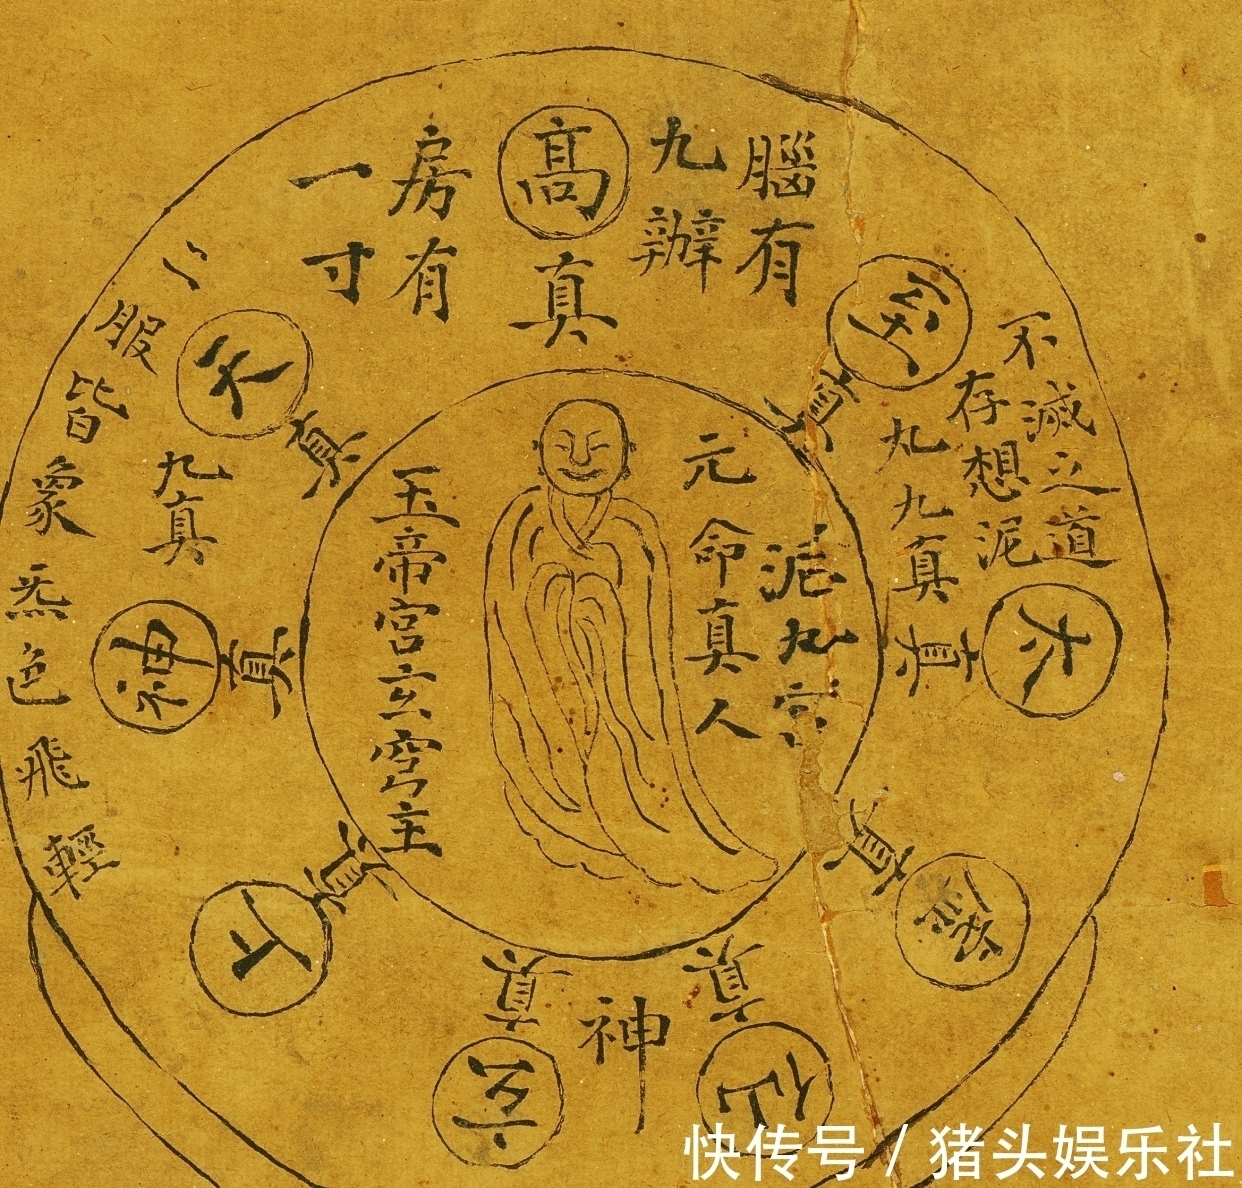 腦有
九辦
高真
房有
一寸
不滅之道
存想泥
丸九真
真
太真
真
仙真
神
玄真
上真
神真
天真
九真
服皆象炁色飛輕
泥丸宮
元命真人
玉帝宮玄穹主
快传号 / 猪头娱乐社